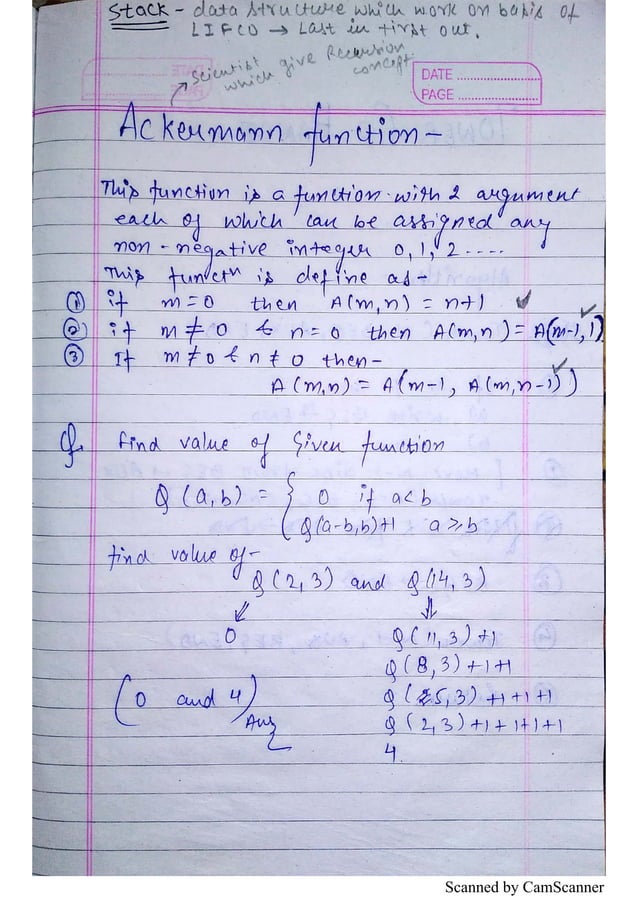 Stack - data structure which work on basis of
LIFO → Last in first out.
Scientist
which give Recursion
concept
DATE
PAGE
Ackermann function -
This function is a function with 2 argument
each of which can be assigned any
non-negative integer 0, 1, 2 ....
This functn is define as -
① if m=0 then A(m,n) = n+1 ✓
② if m ≠ 0 & n = 0 then A(m,n) = A(m-1,1) ✓
③ If m≠0 & n ≠ 0 then -
A(m,n) = A(m-1, A(m,n-1)) ✓
Q. find value of Given function
Q(a,b) = { 0 if a<b
Q(a-b,b)+1 a≥b
find value of -
Q(2,3) and Q(14,3)
⇓ ⇓
0 Q(11,3)+1
Q(8,3)+1+1
(0 and 4) Q(5,3)+1+1+1
Ans Q(2,3)+1+1+1+1
4
Scanned by CamScanner